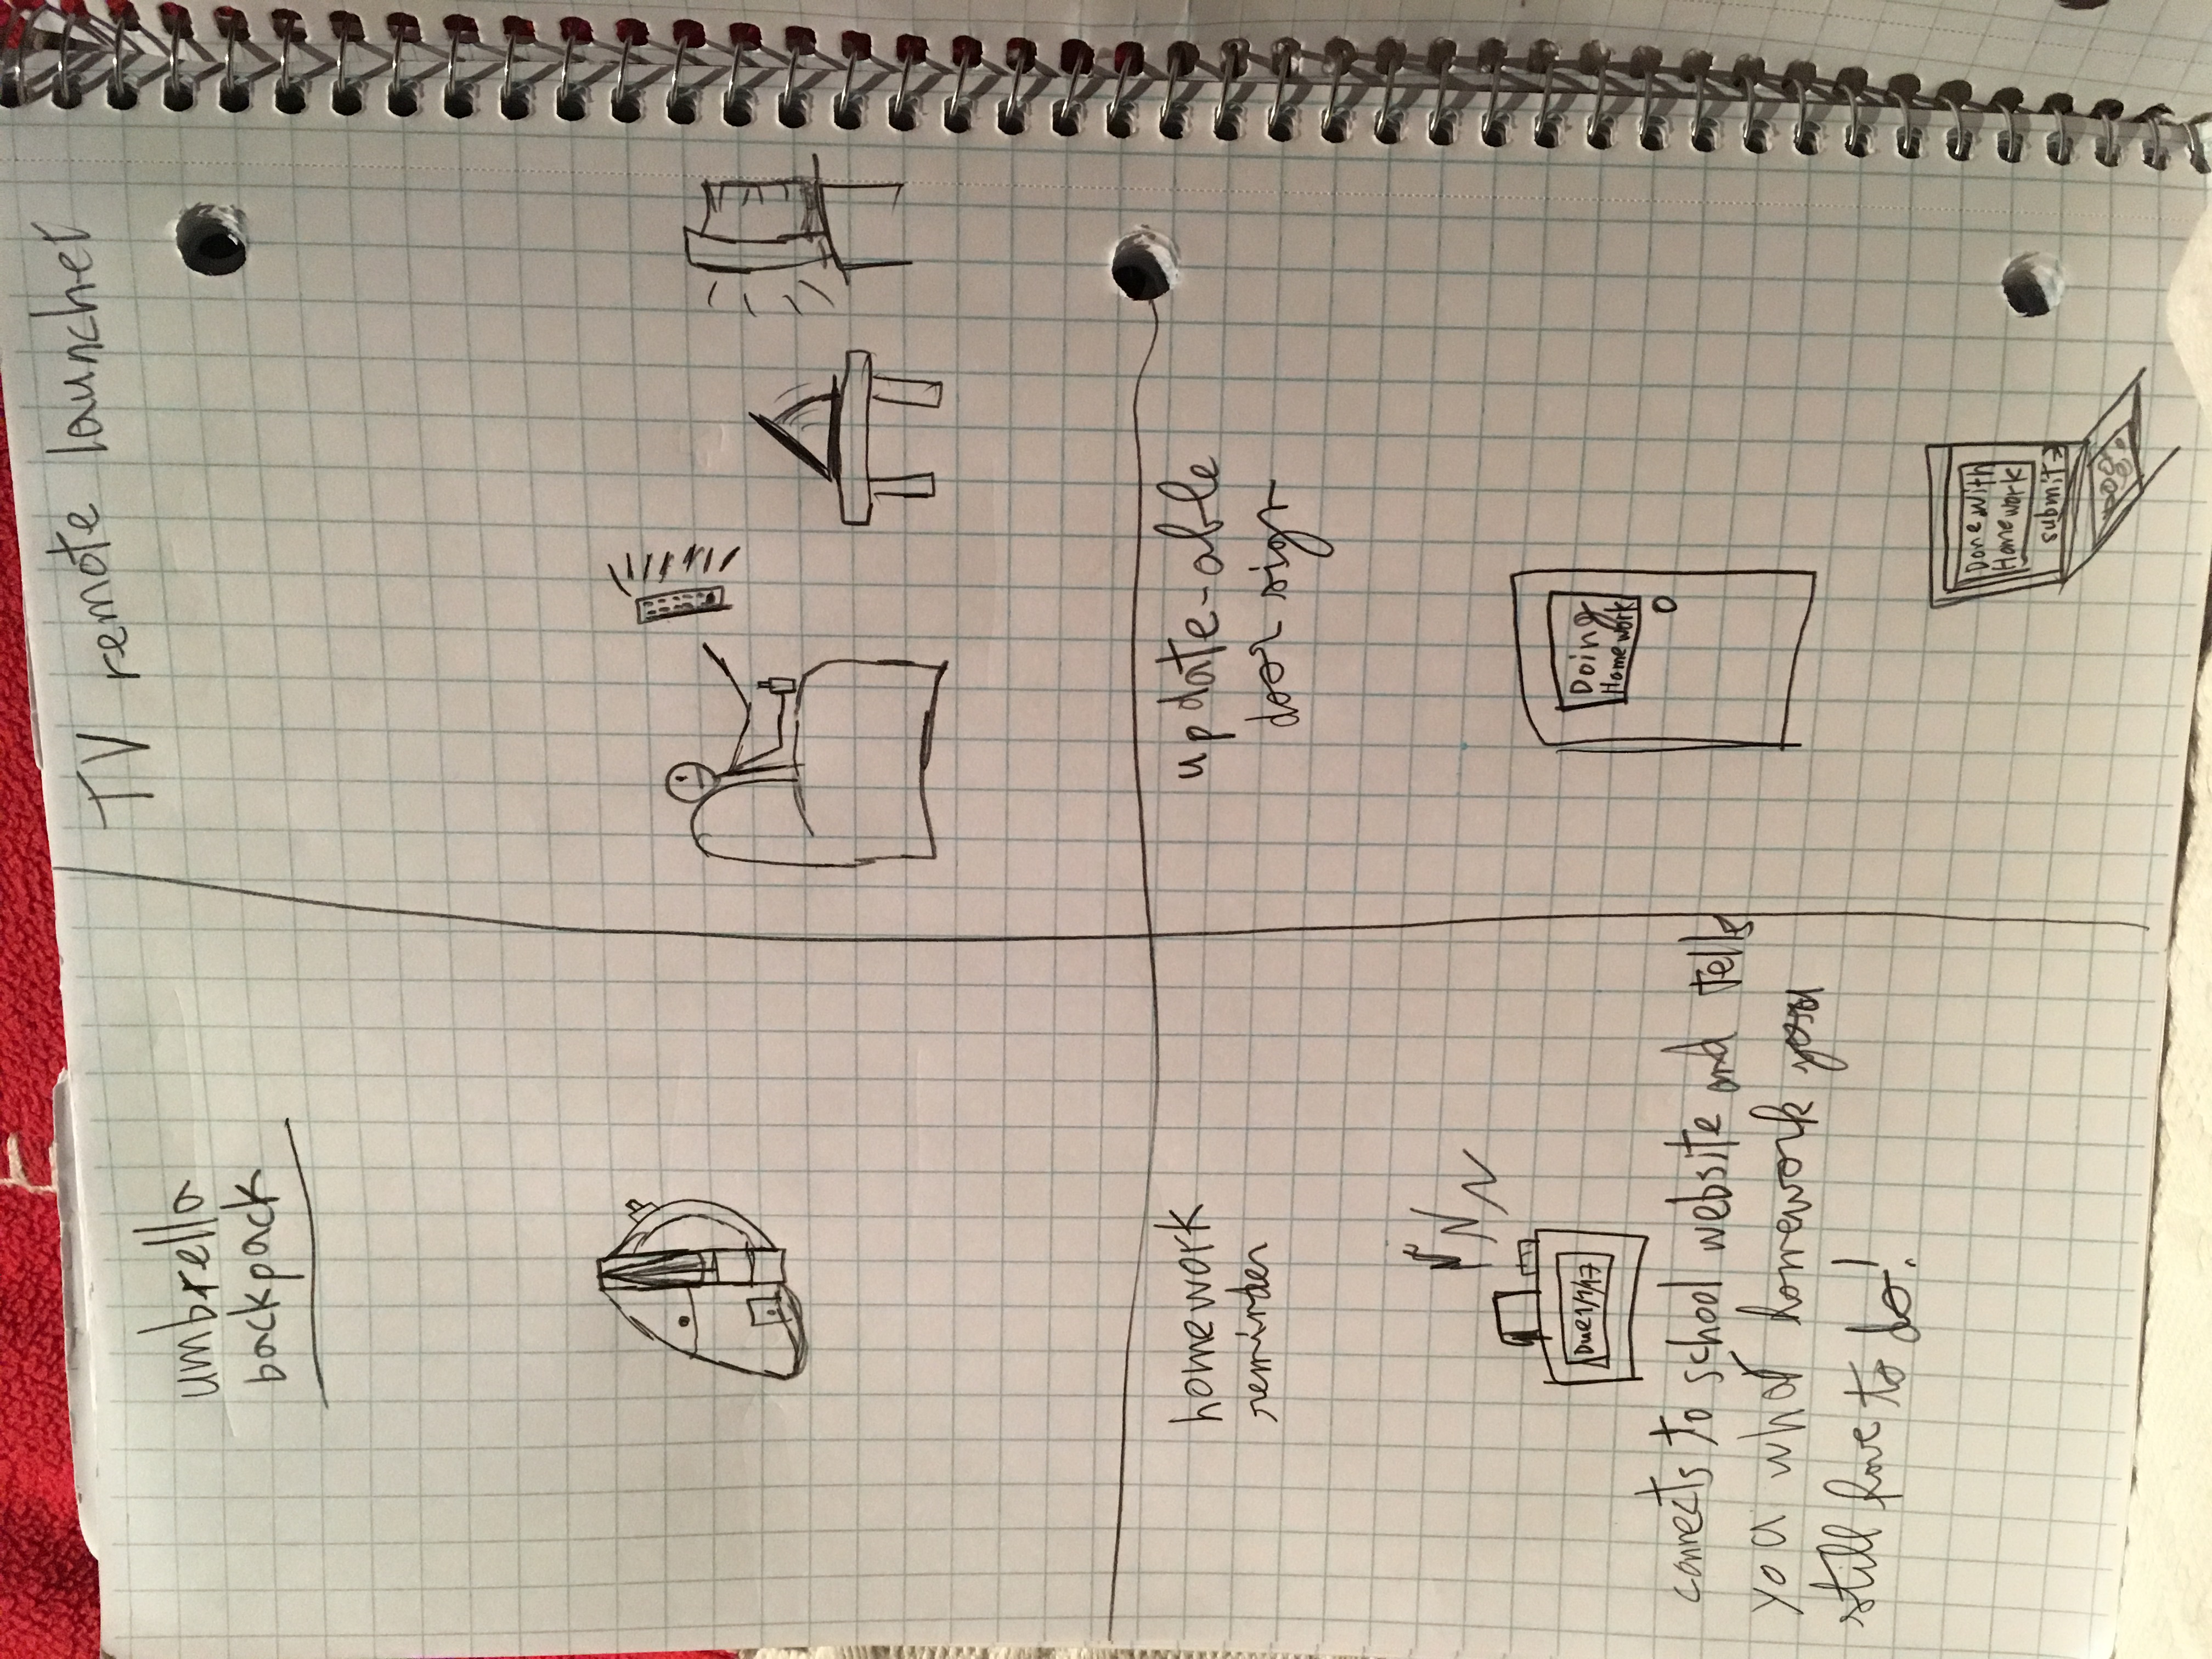 umbrella
backpack
TV remote launcher
homework
reminder
Due 1/1/17
connects to school website and tells
you what homework you
still have to do!
update-able
door sign
Doing
Homework
Done with
Homework
submit→